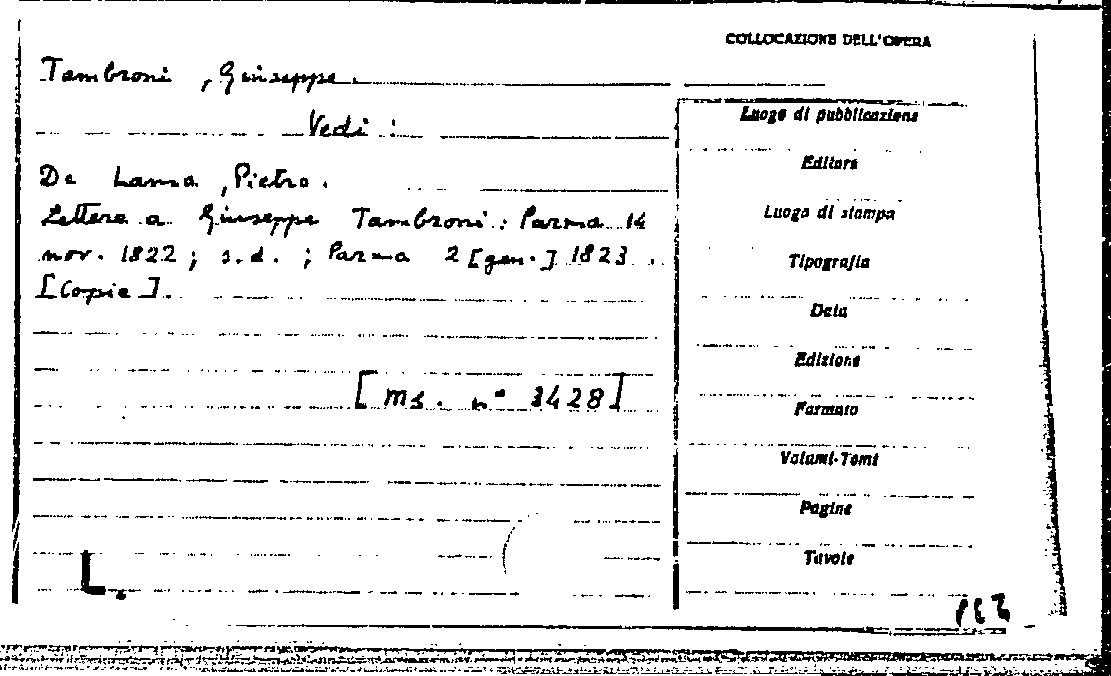 COLLOCAZIONE DELL'OPERA
Tambroni, Giuseppe.
Vedi:
De Lama, Pietro.
Lettere a Giuseppe Tambroni: Parma 14
nov. 1822; s.d.; Parma 2 [gen.] 1823.
[Copie].
[ms. n° 3428]
L.
Luogo di pubblicazione
Editore
Luogo di stampa
Tipografia
Data
Edizione
Formato
Volumi-Tomi
Pagine
Tavole